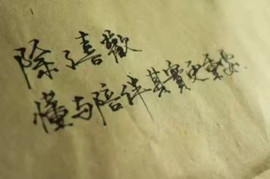 除了喜歡
懂与陪伴其實更重要